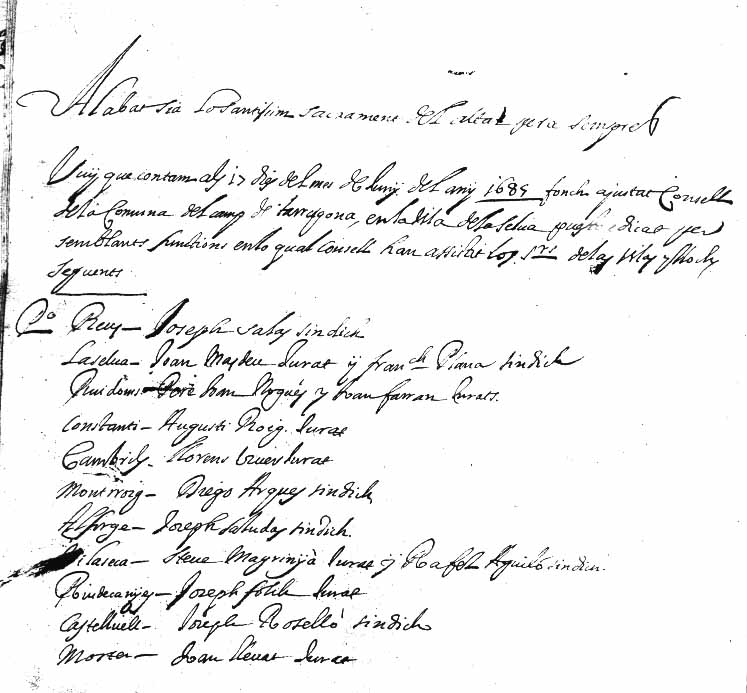 Alabat sia Lo Santisim sacrament del altar pera sempre
Vuy que contam als 17 dies del mes de Juny del any 1685 fonch ajustat Consell
de la Comuna del camp de tarragona, en la vila de la selva puesto dicat per
semblants functions en lo qual consell han assistit los srs de las vilas y llochs
seguents
Po Reus - Joseph salas sindich
La selva - Joan Magdeu Jurat y franch Plana sindich
Ruidoms Joan Nogués y Joan farran Jurats.
Constanti - Augusti Roig. Jurat
Cambrils - Llorens Jurat
Montrroig - Diego Argues sindich
Alforge - Joseph saludas sindich.
Vilaseca - steve Magrinyà Jurat y Rafel Aguiló sindich.
Riudecanyes - Joseph folch Jurat
Castellvell - Joseph Roselló sindich
Morter - Joan llevat Jurat